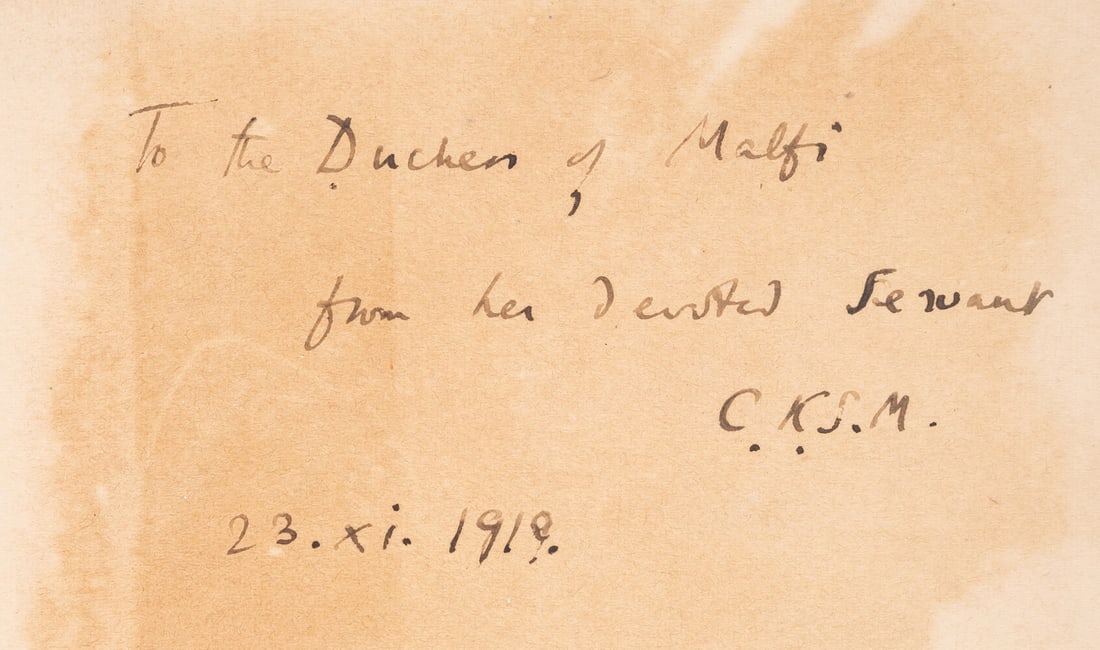 To the Duchess of Malfi,
from her devoted Servant
C.K.S.M.
23.xi.1919.